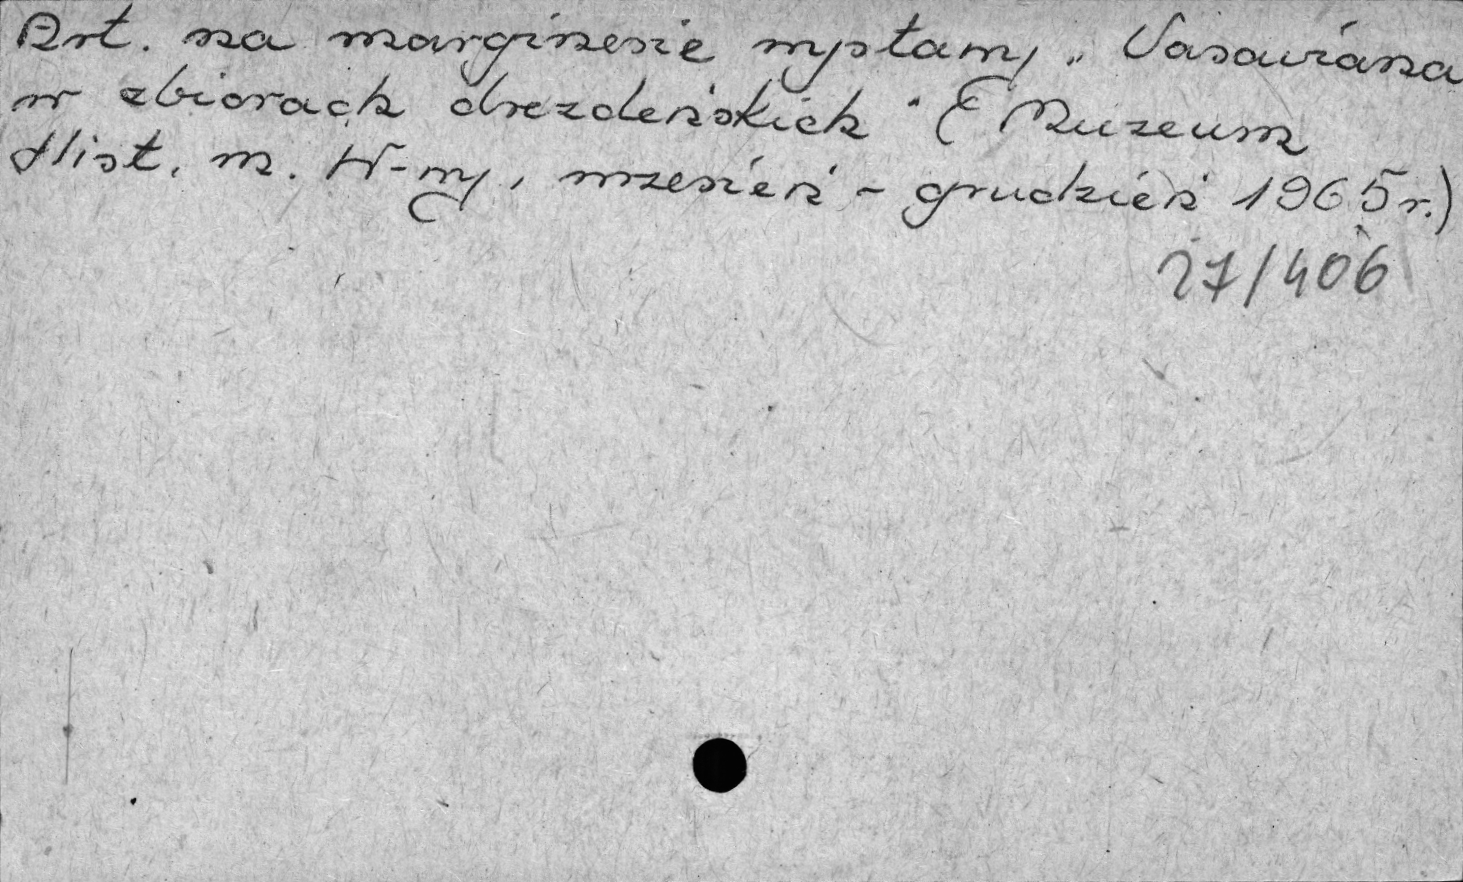 Art. na marginesie wystawy „Varsaviana
w zbiorach drezdeńskich" (Muzeum
Hist. m. W-wy, wrzesień - grudzień 1965 r.)
27/406